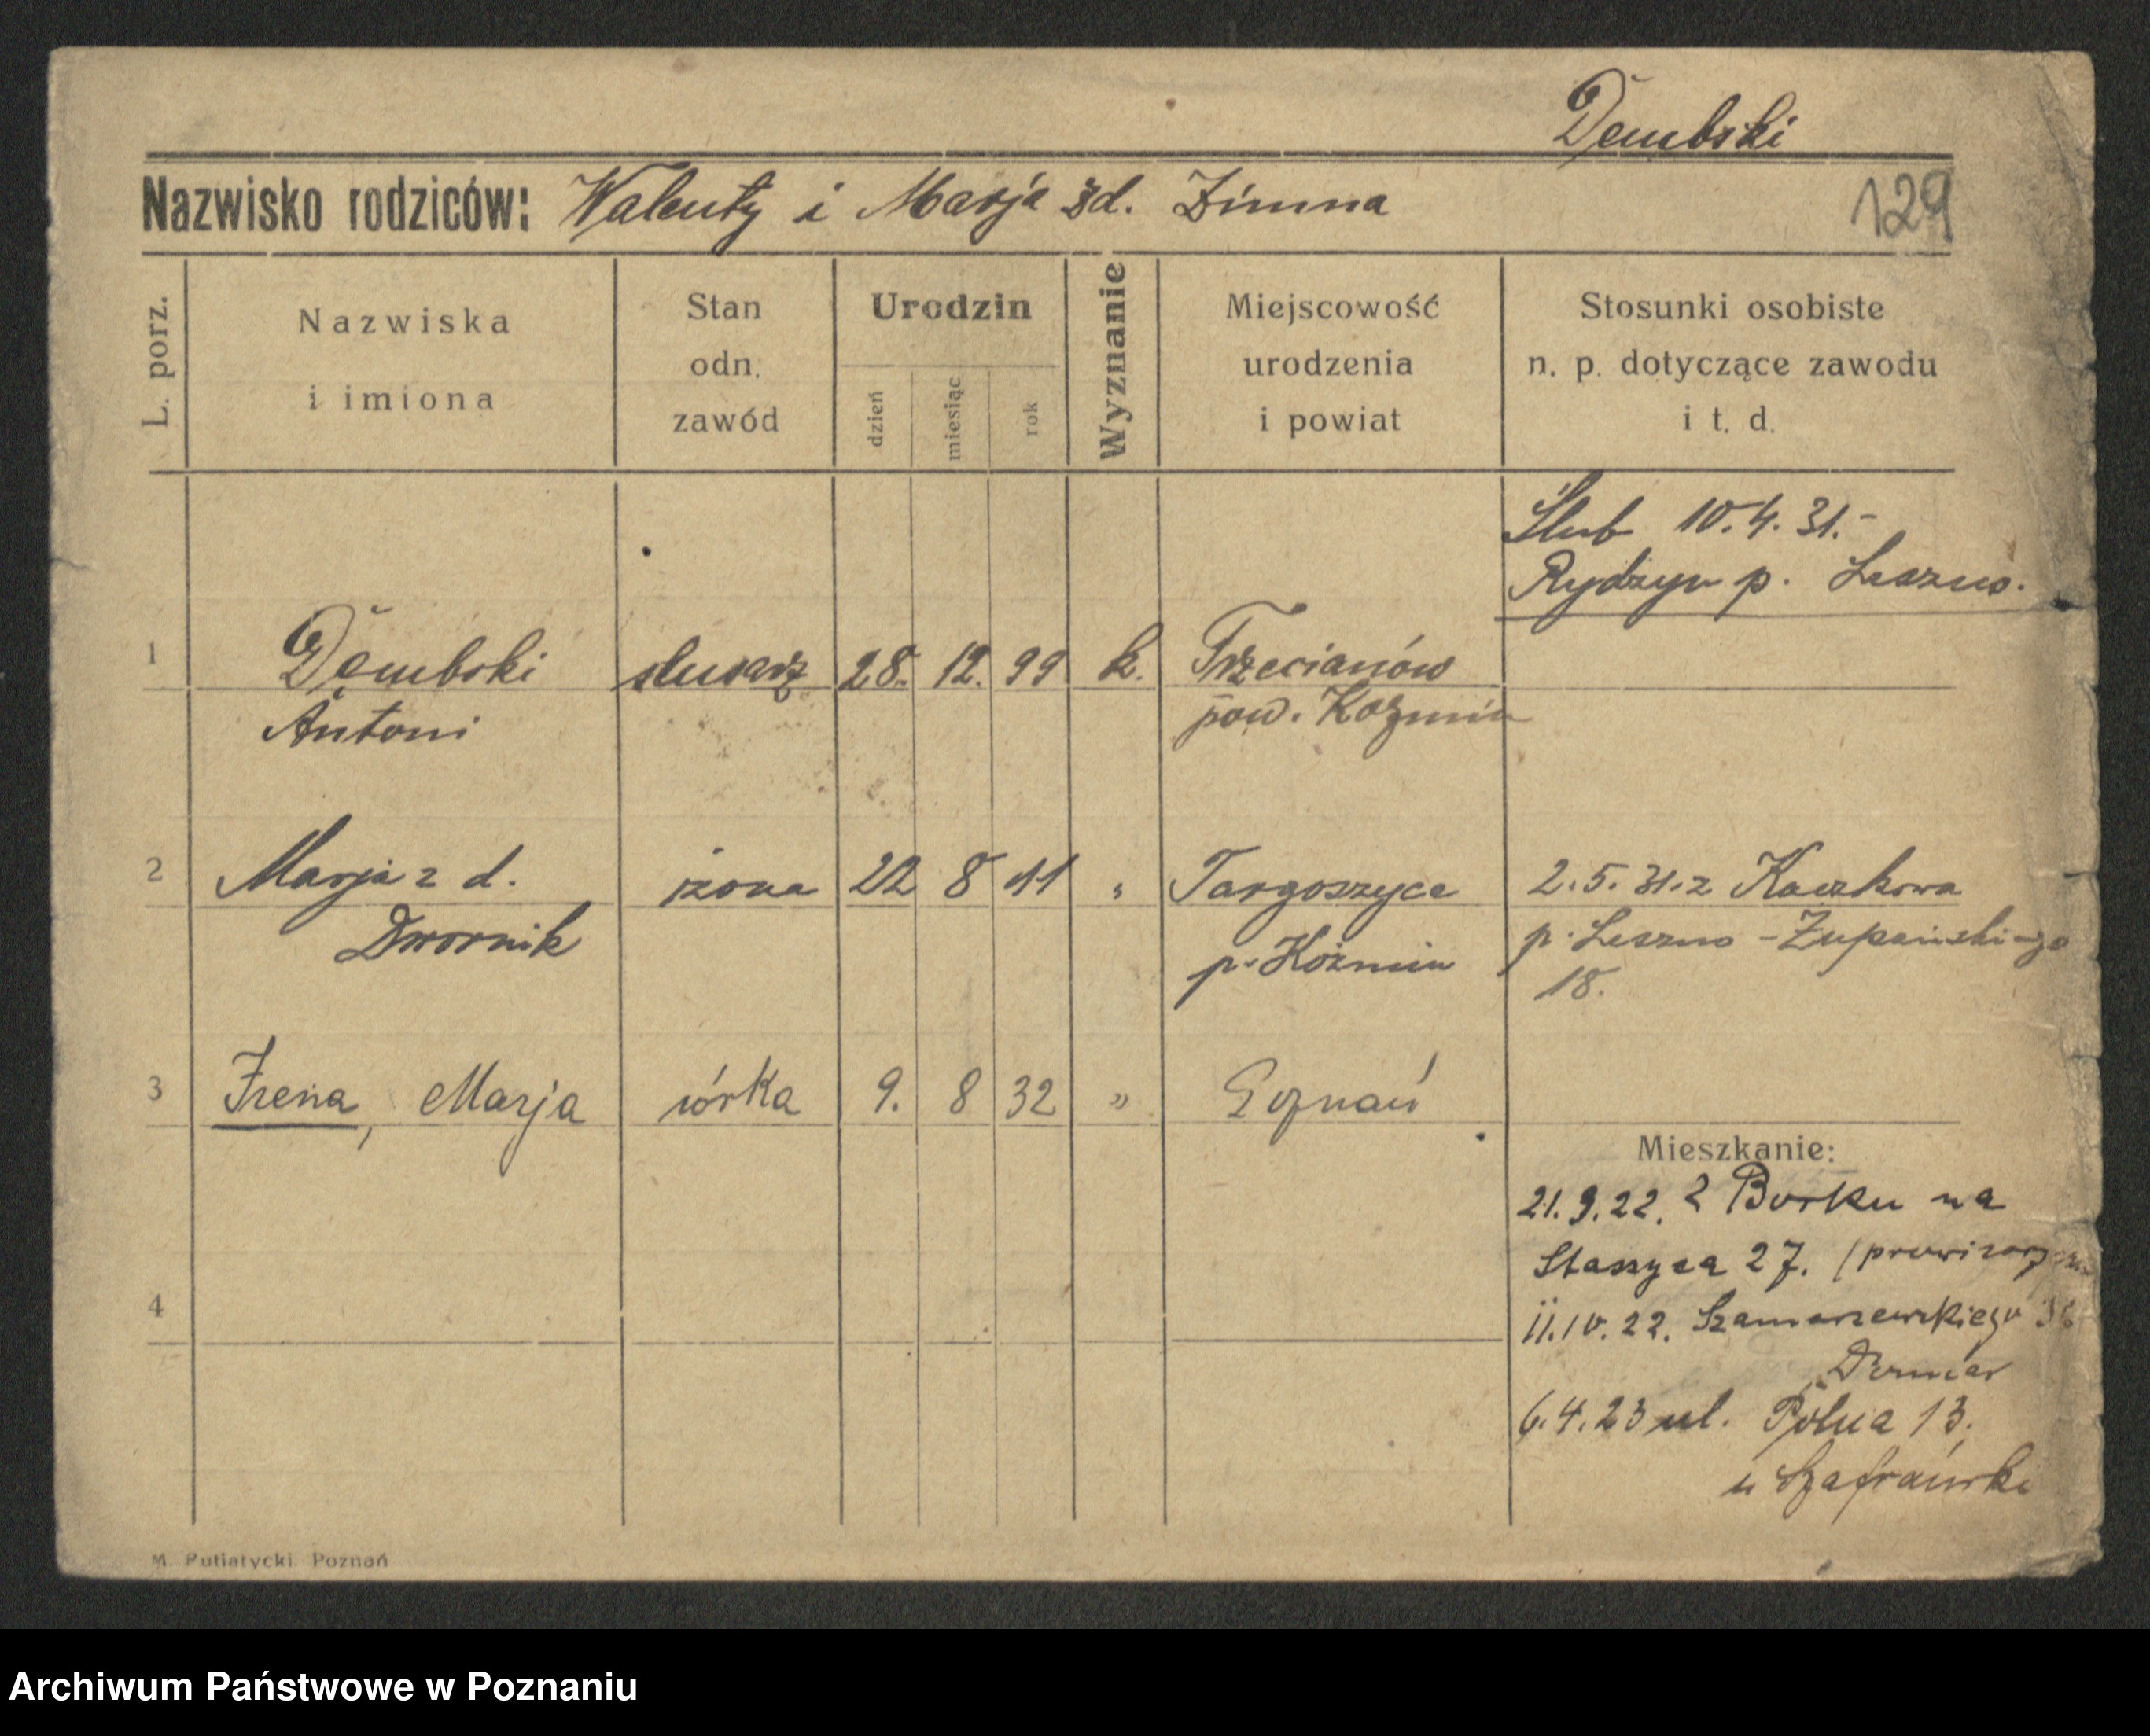 Dembski
Nazwisko rodziców: Walenty i Marja zd. Zimna
129
L. porz.
Nazwiska
i imiona
Stan
odn.
zawód
Urodzin
dzień
miesiąc
rok
Wyznanie
Miejscowość
urodzenia
i powiat
Stosunki osobiste
n. p. dotyczące zawodu
i t. d.
Ślub 10.4.31.-
Rydzyn p. Leszno.
1 Dembski ślusarz 28. 12. 99 k. Trzecianów
Antoni pow. Kozmin
2 Marja z d. żona 22 8 11 " Targoszyce 2.5.31. z Kaczkowa
Dwornik p. Koźmin p. Leszno - Żupańskiego
18.
3 Irena, Marja córka 9. 8 32 " Poznań
Mieszkanie:
21.9.22. z Borku na
Staszyca 27.
4
11.10.22. Szamarzewskiego
6.4.23 ul. Polna 13.
u Szafrański
M. Putiatycki. Poznań
Archiwum Państwowe w Poznaniu